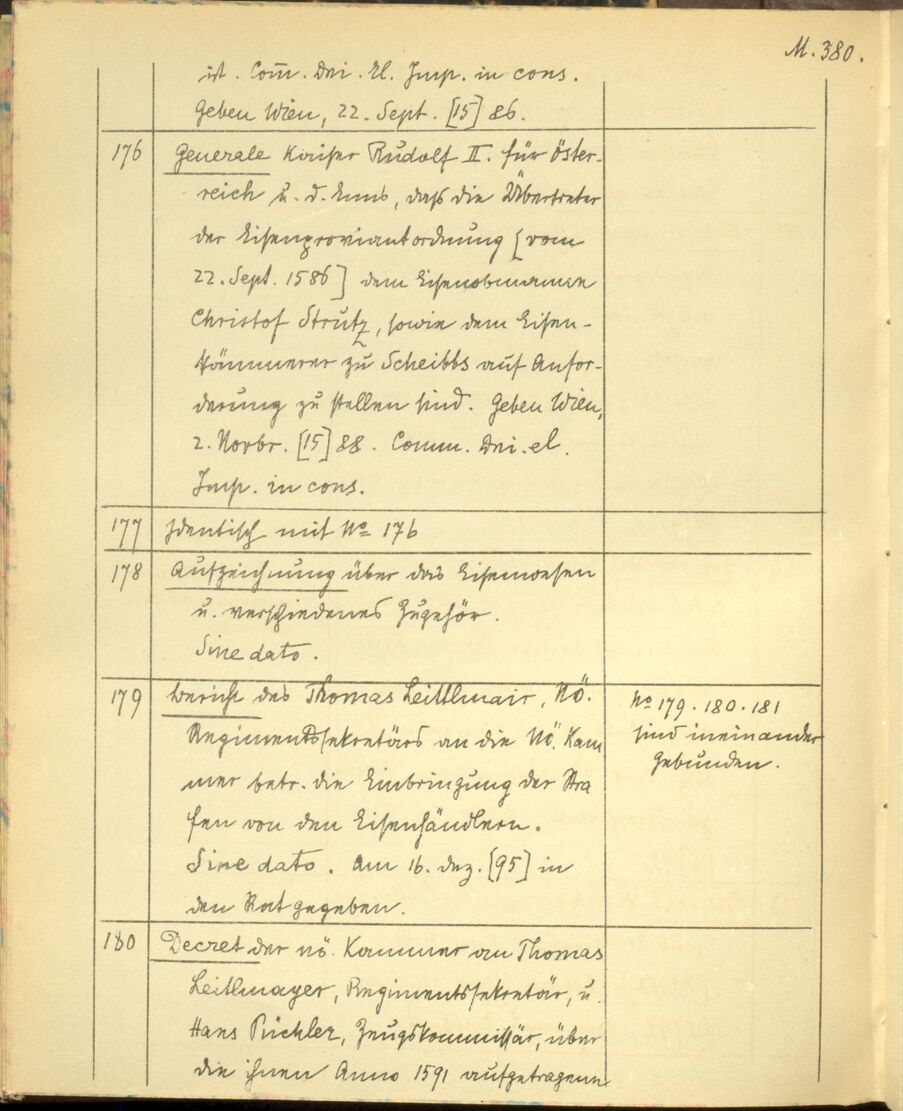 M. 380.
ist. Com̄. Dni. El. Imp. in cons.
Geben Wien, 22. Sept. [15] 86.
176 Generale Kaiser Rudolf II. für Öster-
reich u. d. Enns, daß die Übertreter
der Eisenproviantordnung [vom
22. Sept. 1586] dem Eisenobmanne
Christof Strutz, sowie dem Eisen-
kämmerer zu Scheibbs auf Anfor-
derung zu stellen sind. Geben Wien,
2. Novbr. [15] 88. Comm. Dni. el.
Imp. in cons.
177 Identisch mit No 176
178 Aufzeichnung über das Eisenwesen
u. verschiedenes Zugehör.
Sine dato.
179 Bericht des Thomas Leittlmair, Nö.
Regimentssekretärs an die Nö. Kam
mer betr. die Einbringung der Stra
fen von den Eisenhändlern.
Sine dato. Am 16. Dez. [95] in
den Rat gegeben.
No 179. 180. 181
sind ineinander
gebunden.
180 Decret der nö. Kammer an Thomas
Leitlmayer, Regimentssekretär, u.
Hans Püchler, Zeugskommissär, über
die ihnen Anno 1591 aufgetragene